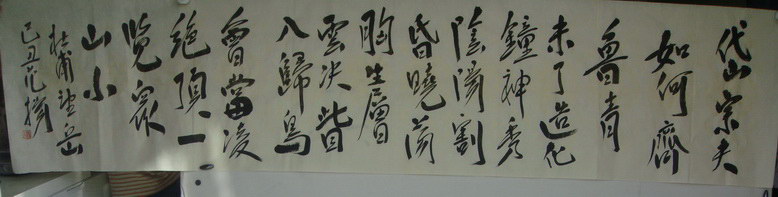 岱宗夫
如何齊
魯青
未了造化
鐘神秀
陰陽割
昏曉蕩
胸生層
雲决眥
入歸鳥
會當凌
絕頂一
覽眾
山小
杜甫望岳
己丑范揚